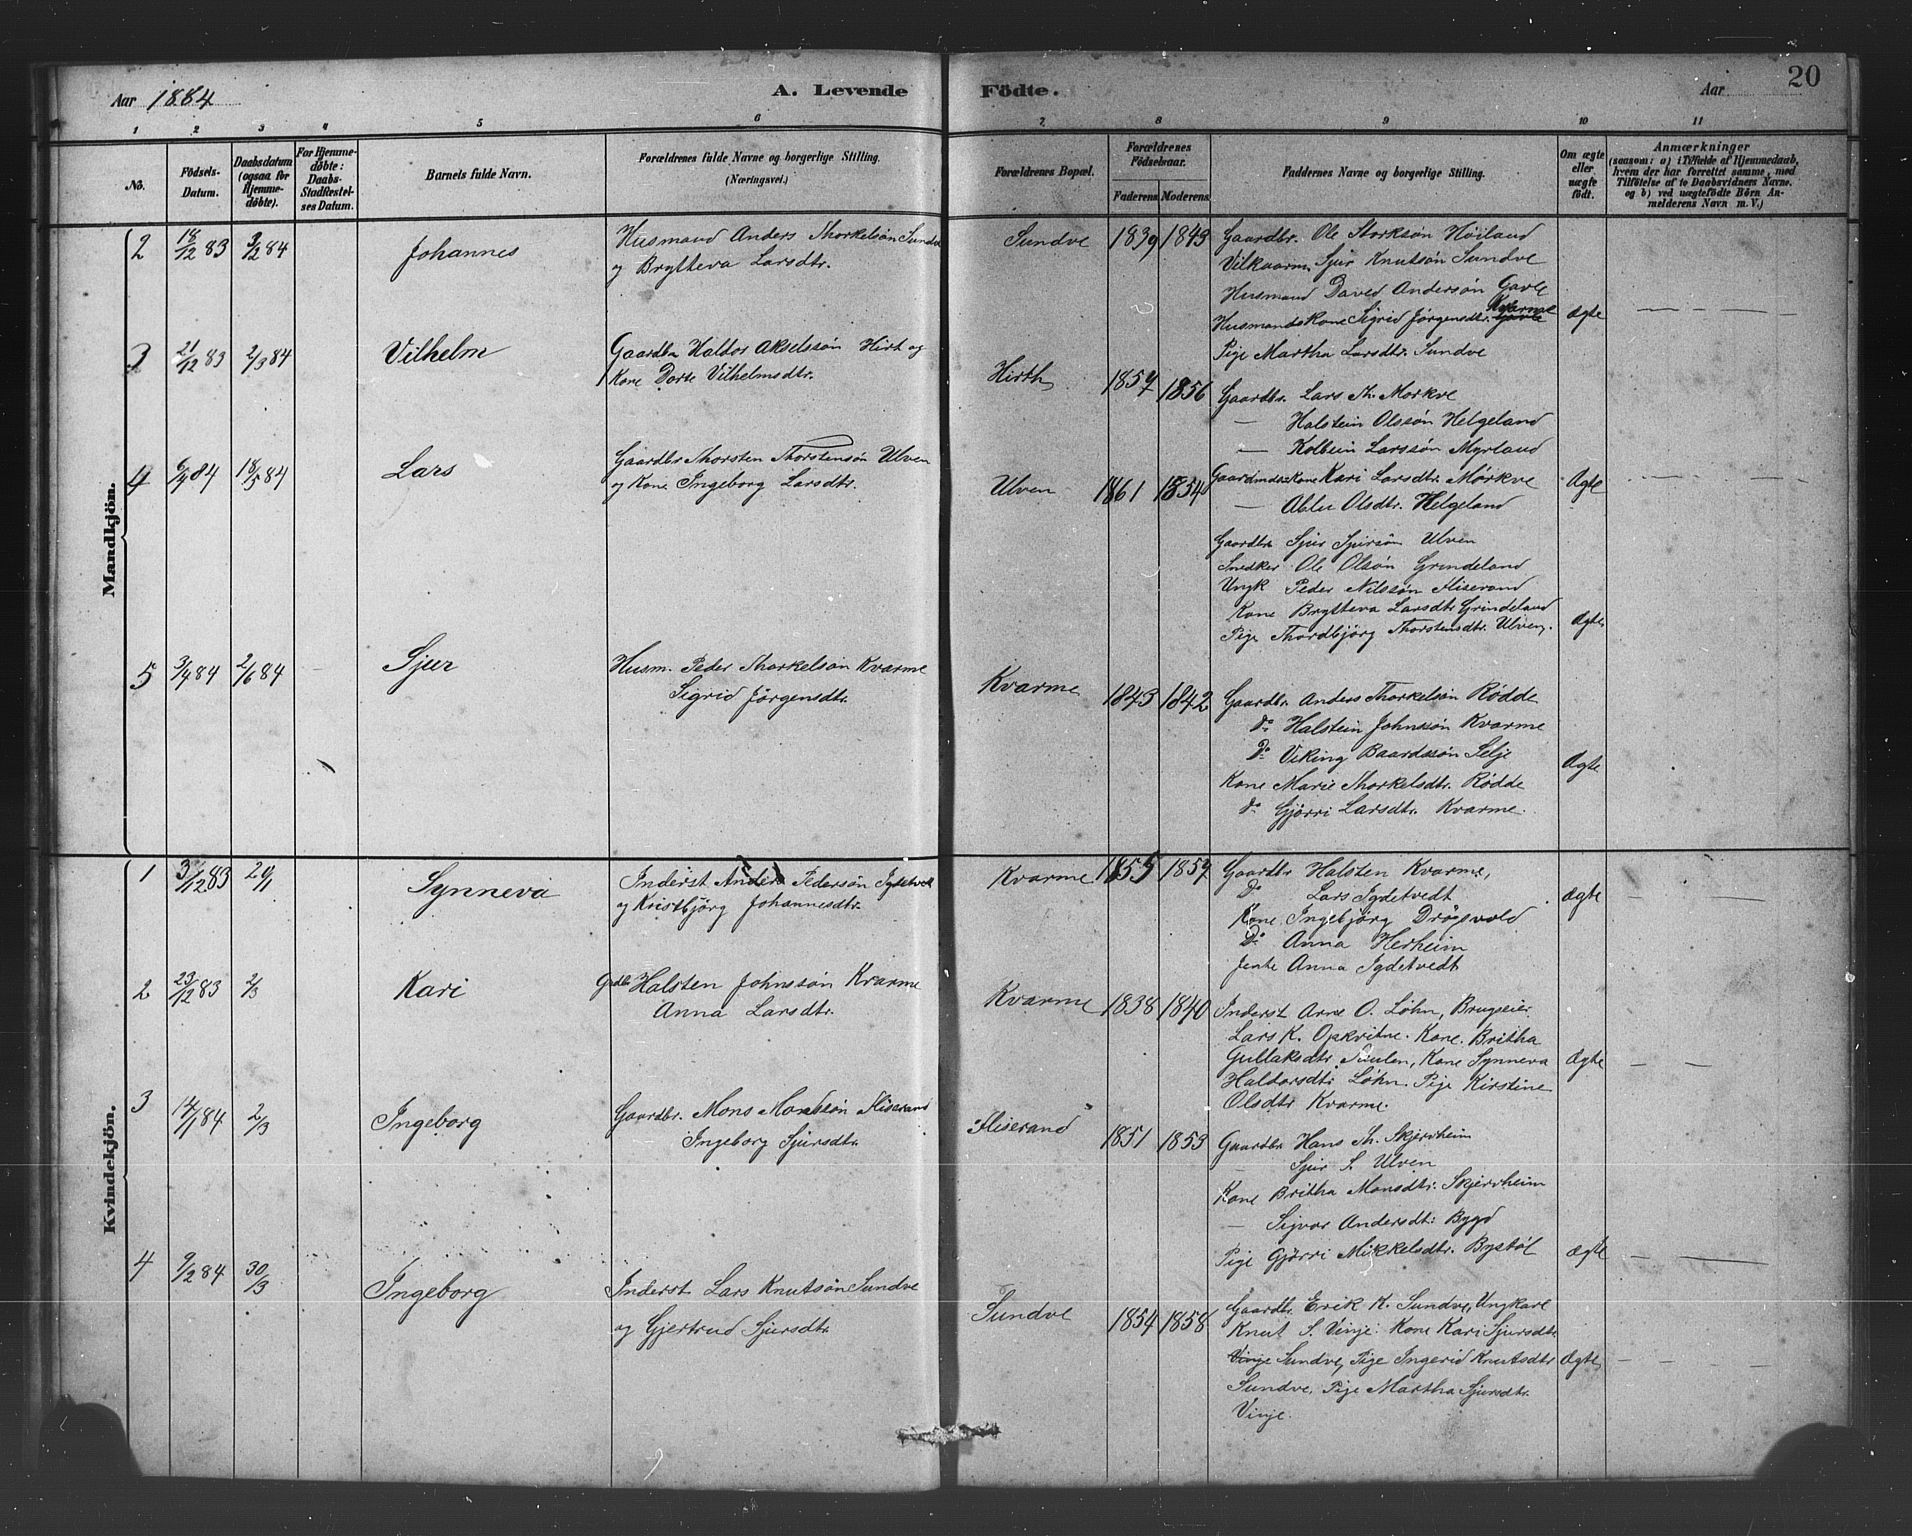 Aar 1884 A. Levende Födte. Aar 20
1 2 3 4 5 6 7 8 9 10 11
No.
Födsels-
Datum.
Daabsdatum
(ogsaa for
Hjemme-
döbte).
For Hjemme-
döbte:
Daabs-
Stadfæstel-
ses Datum.
Barnets fulde Navn.
Forældrenes fulde Navne og borgerlige Stilling.
(Næringsvei.)
Forældrenes Bopæl.
Forældrenes
Födselsaar.
Faderens Moderens
Faddernes Navne og borgerlige Stilling.
Om ægte
eller
uægte
födt.
Anmærkninger
(saasom: a) i Tilfælde af Hjemmedaab,
hvem der har forrettet samme, med
Tilföielse af to Daabsvidners Navne,
og b) ved uægtefödte Börn An-
melderens Navn m. V.)
Mandkjön.
2 18/12 83 3/2 84 Johannes
Husmand Anders Thorkelsön Sundve
og Brytteva Larsdtr.
Sundve 1839 1843
Gaardbr. Ole Storksön Höiland
Vilkaarm. Sjur Knutsön Sundve
Husmand David Andersön Gavle
Husmands Kone Sigrid Jörgensdtr. Kvarme
Pige Martha Larsdtr. Sundve
Ægte
3 21/12 83 2/3 84 Vilhelm
Gaardbr Haldor Akselssön Hirt og
Kone Dorte Vilhelmsdtr.
Hirth 1857 1856
Gaardbr. Lars Th. Morkve
— Halstein Olssön Helgeland
— Kolbein Larssön Myrland
Gaardmds Kone Kari Larsdtr. Mörkve
— Olsdtr. Helgeland
Ægte
4 6/4 84 18/5 84 Lars
Gaardbr Thorsten Thorstensön Ulven
og Kone Ingeborg Larsdtr.
Ulven 1861 1854
Gaardbr Sjur Sjursön Ulven
Snedker Ole Olsön Grindeland
Ungk Peder Nilssön Fliserand
Kone Brytteva Larsdtr Grindeland
Pige Thordbjörg Thorstensdtr. Ulven.
Ægte
5 3/4 84 2/6 84 Sjur
Husm. Peder Thorkelsön Kvarme
Sigrid Jörgensdtr.
Kvarme 1843 1842
Gaardbr. Anders Thorkelsön Rödde
do Halstein Johnssön Kvarme
Do Viking Baardssön Selje
Kone Marie Thorkelsdtr. Rödde
do Gjörri Larsdtr. Kvarme.
Ægte
Kvindekjön.
1 3/12 83 20/1 Synneva
Inderst Anders Pedersön Igdetvedt
og Kristbjörg Johannesdtr.
Kvarme 1855 1857
Gaardbr Halsten Kvarme,
Do Lars Igdetvedt
Kone Ingebjörg Drögsvold
Do Anna Herheim
Jente Anna Igdetvedt
Ægte
2 23/12 83 2/3 Kari
Grdbr Halsten Johnssön Kvarme
Anna Larsdtr.
Kvarme 1838 1840
Inderst Arne O. Löhn, Brugseier
Lars K. Opkvitne. Kone Britha
Gullaksdtr Saulen, Kone Synneva
Haldorsdtr Löhn. Pige Kirstine
Olsdtr Kvarme.
Ægte
3 14/1 84 2/3 Ingeborg
Gaardbr. Mons Monssön Fliserand
Ingeborg Sjursdtr.
Fliserand 1851 1853
Gaardbr Hans Th. Skjerveheim
— Sjur S. Ulven
Kone Britha Monsdtr. Skjerveheim
— Sigvor Andersdtr: Bygd
Pige Gjörri Mikkelsdtr. Bystöl
Ægte
4 9/2 84 30/3 Ingeborg
Inderst Lars Knutsön Sundve
og Gjertrud Sjursdtr.
Sundve 1854 1858
Gaardbr. Erik K. Sundve, Ungkarl
Knut S. Vinje. Kone Kari Sjursdtr
Vinje Sundve, Pige Ingerid Knutsdtr
Sundve, Pige Martha Sjursdtr.
Vinje.
Ægte